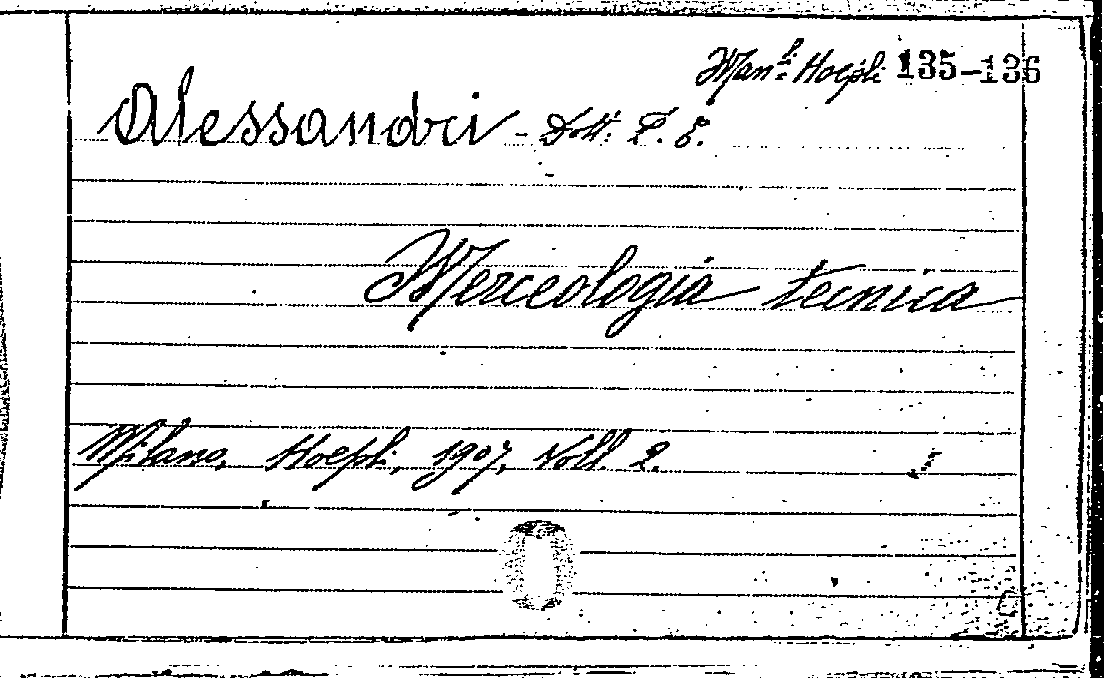 Man.li Hoepli 135-136
Alessandri - Dott. P. E.
Merceologia tecnica
Milano, Hoepli, 1907, Voll. 2.